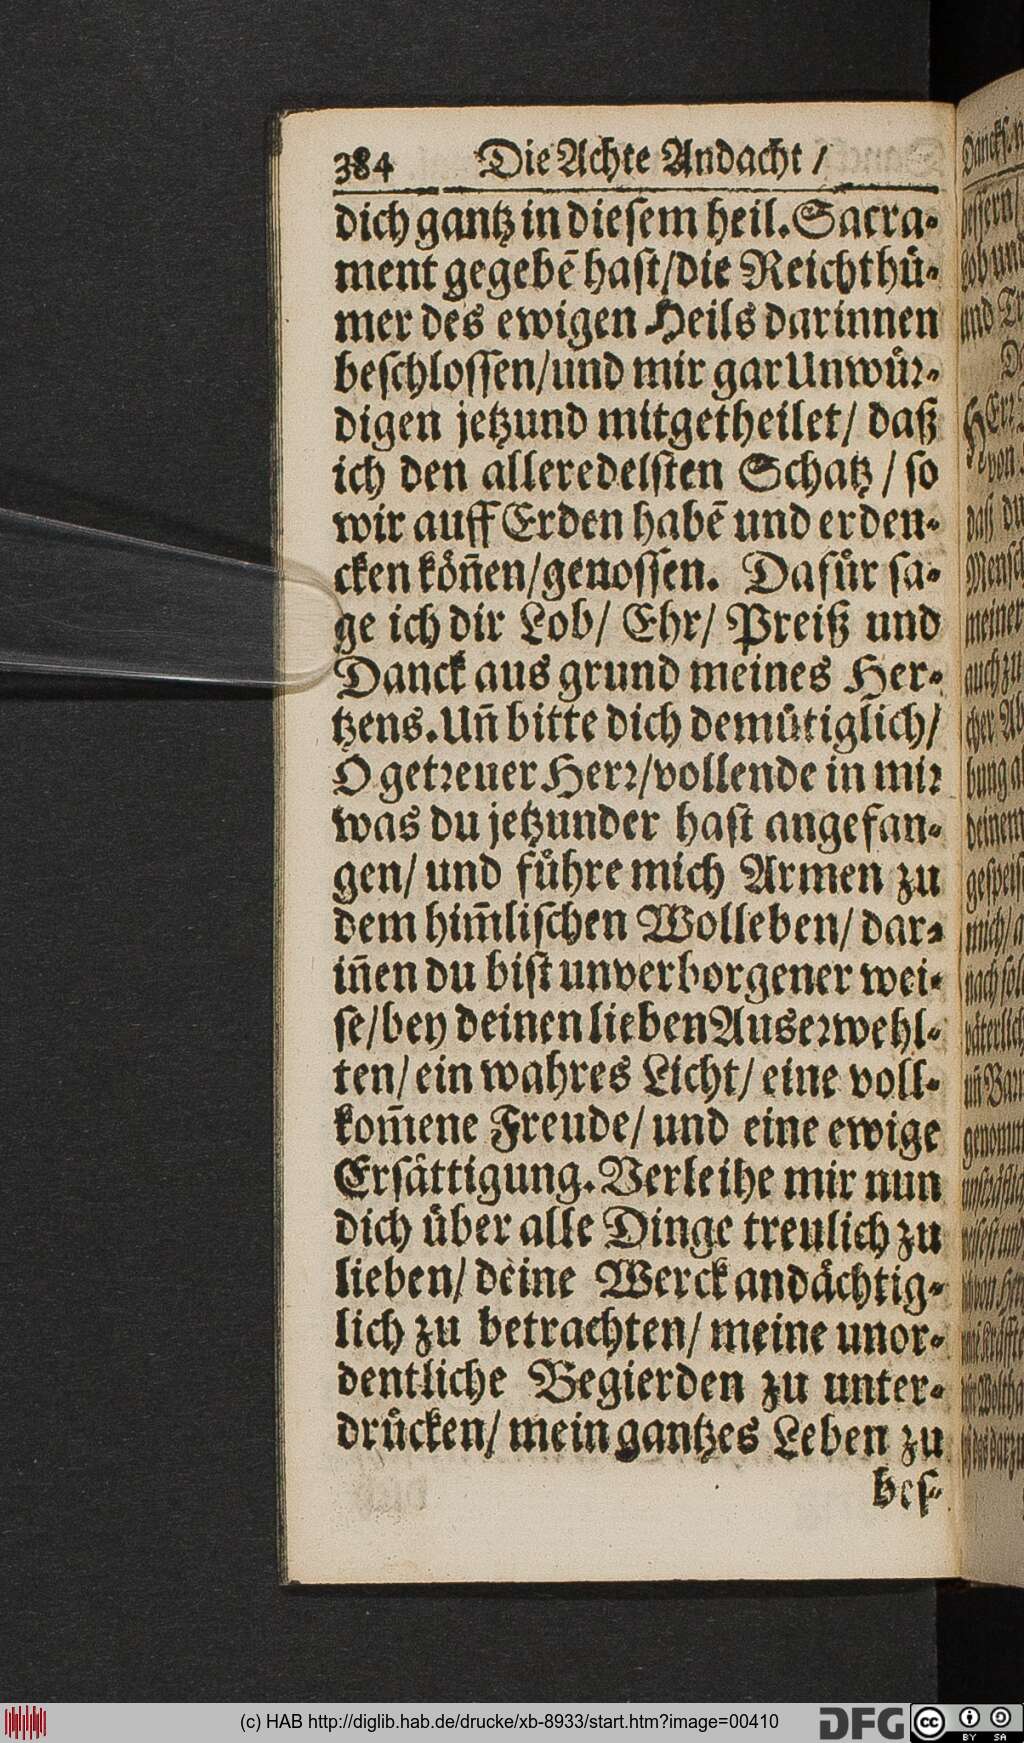 384 Die Achte Andacht /
dich gantz in diesem heil. Sacra-
ment gegebē hast/die Reichthuͤ-
mer des ewigen Heils darinnen
beschlossen/und mir gar Unwuͤr-
digen jetzund mitgetheilet/ daß
ich den alleredelsten Schatz / so
wir auff Erden habē und erden-
cken koͤñen/genossen. Dafuͤr sa-
ge ich dir Lob/ Ehr/ Preiß und
Danck aus grund meines Her-
tzens. Uñ bitte dich demuͤtiglich/
O getreuer Herr/vollende in mir
was du jetzunder hast angefan-
gen/ und fuͤhre mich Armen zu
dem him̃lischen Wolleben/ dar-
iñen du bist unverborgener wei-
se/bey deinen lieben Auserwehl-
ten/ ein wahres Licht/ eine voll-
kom̃ene Freude/ und eine ewige
Ersaͤttigung. Verleihe mir nun
dich uͤber alle Dinge treulich zu
lieben/ deine Werck andaͤchtig-
lich zu betrachten/ meine unor-
dentliche Begierden zu unter-
druͤcken/ mein gantzes Leben zu
bes-
(c) HAB http://diglib.hab.de/drucke/xb-8933/start.htm?image=00410
DFG
cc BY SA